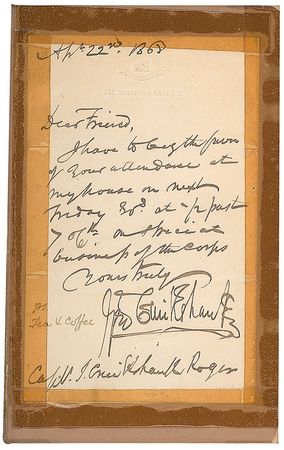 Apl. 22nd. 1868
263 Hampstead Road N.W.
Dear Friend,
I have to beg the favor
of your attendance at
my house on next
Friday at 1/2 past
7 o'clk on
business of the Corps
Yours truly
Geo Cruikshank
Tea & Coffee
Capt. J. Cruikshank Rogers